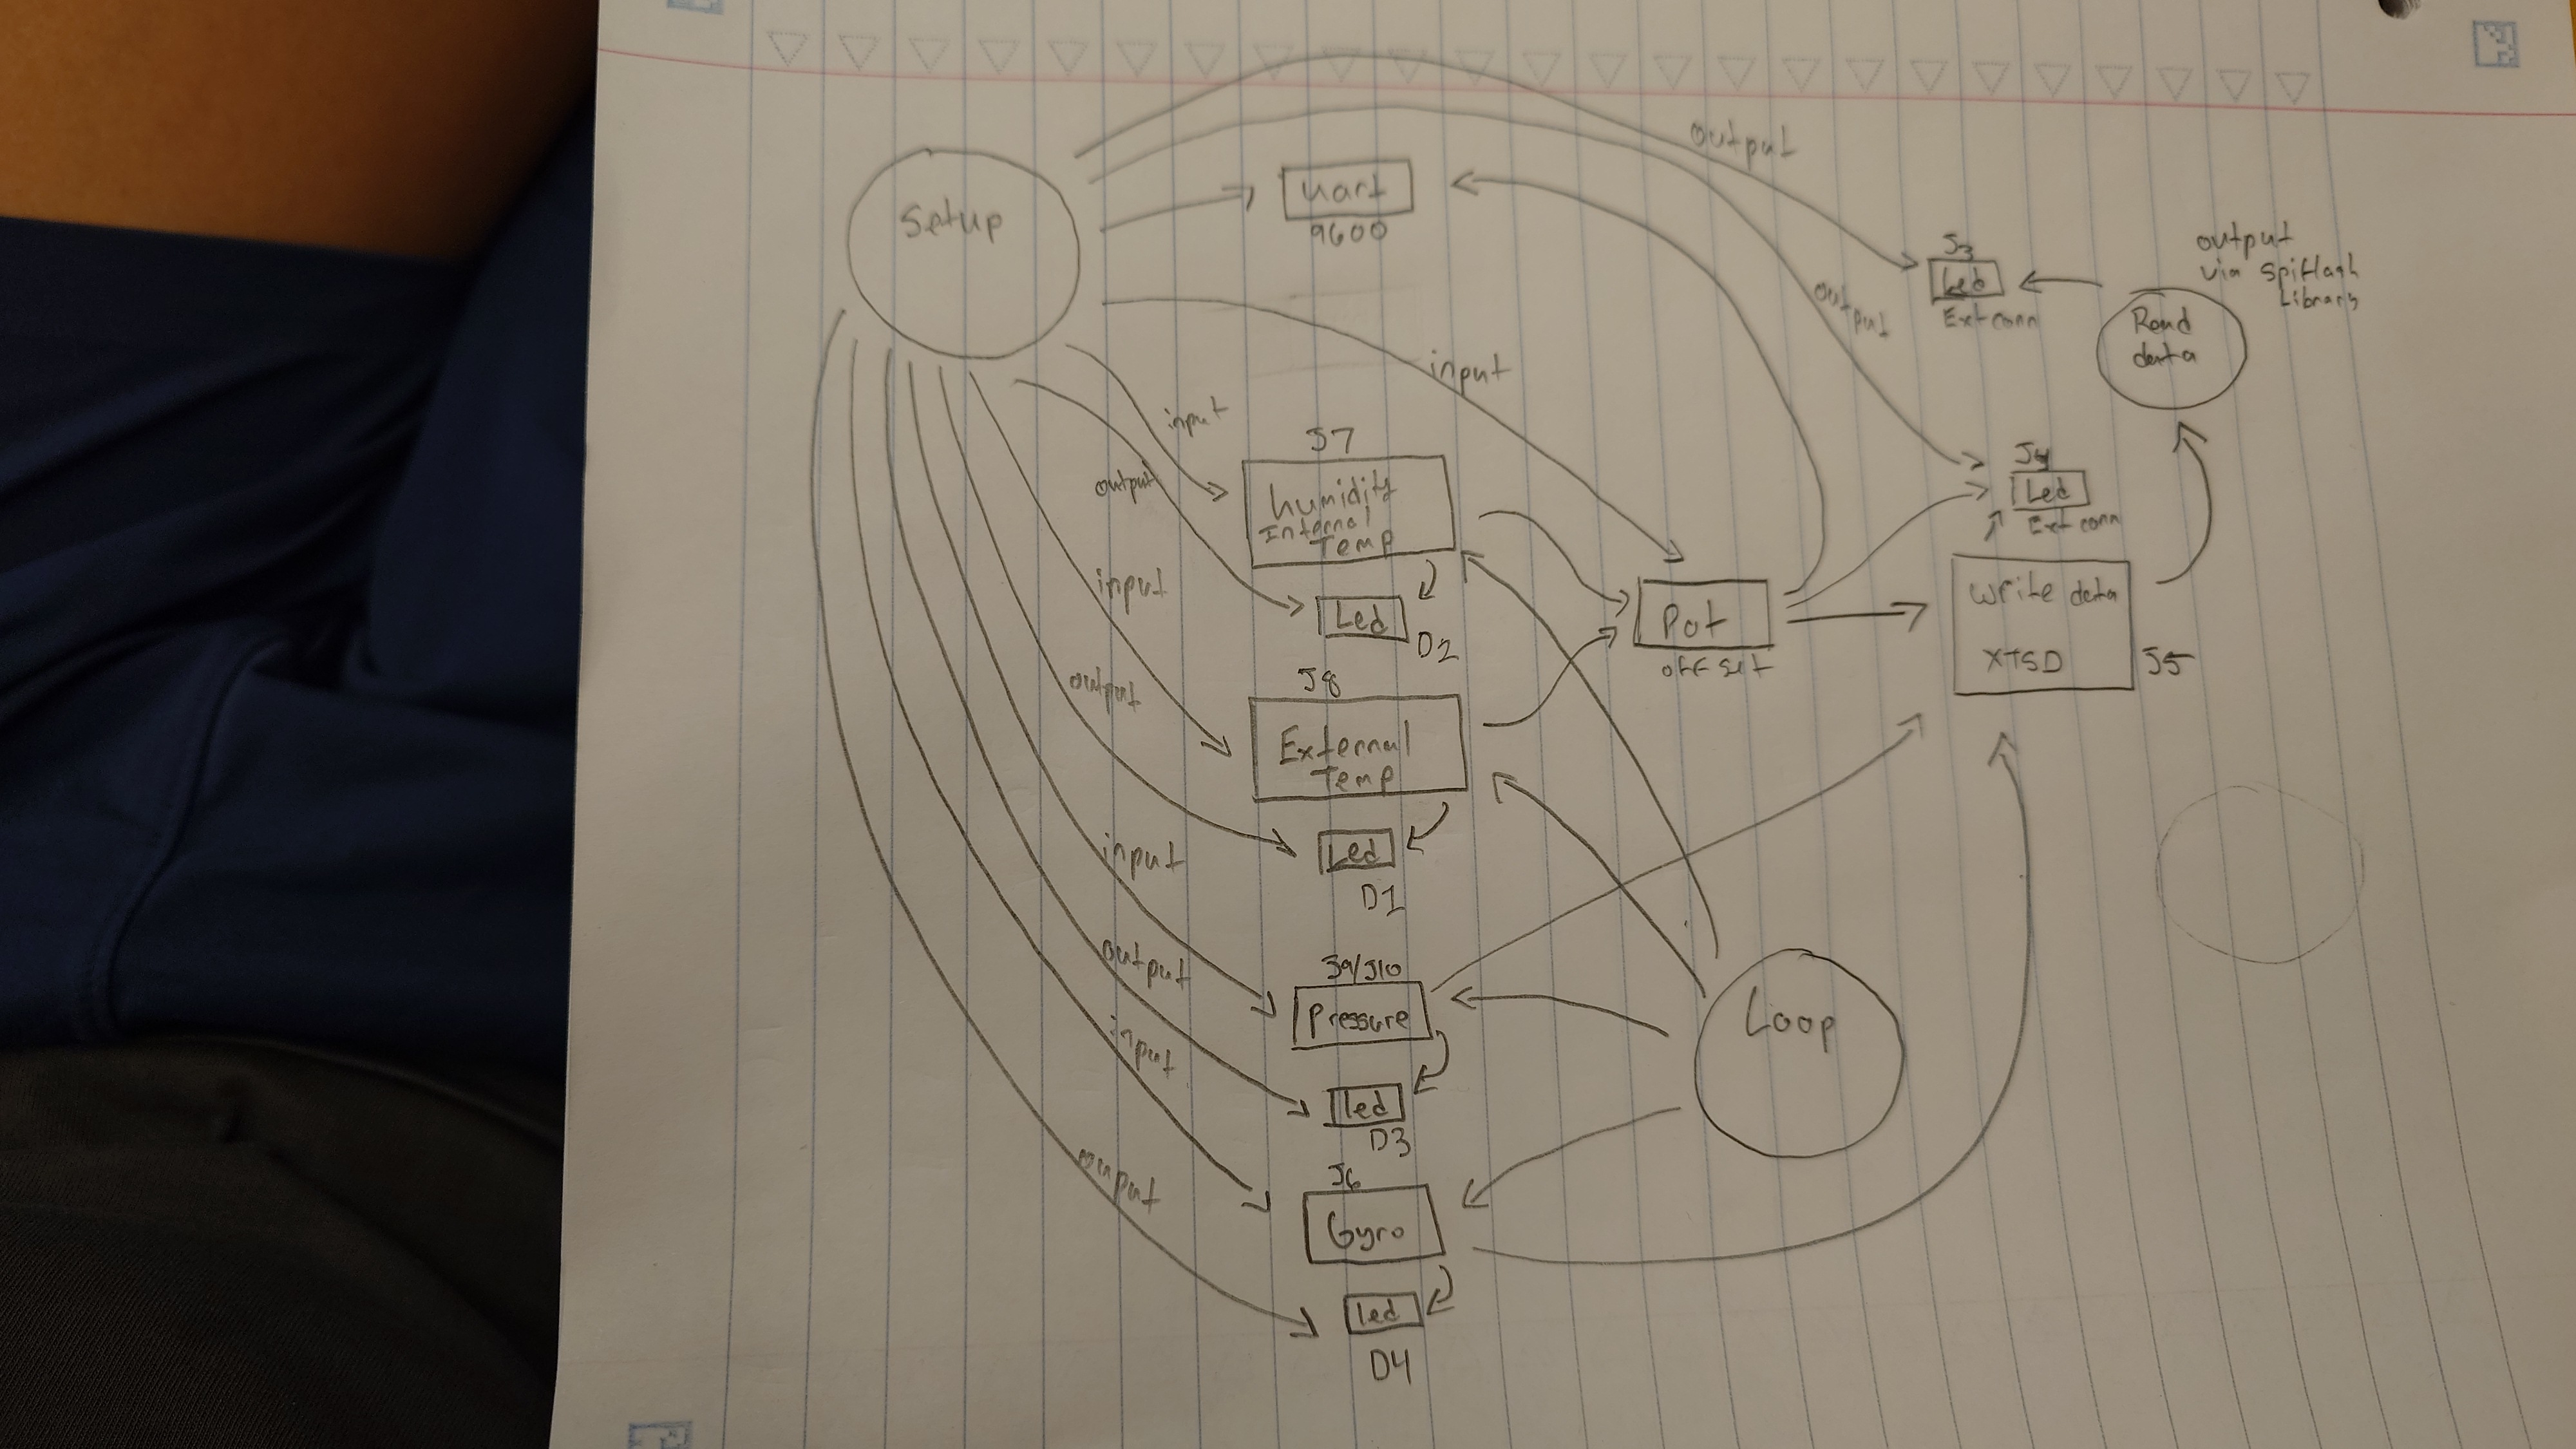 Setup
uart
9600
input
output
input
output
input
output
input
output
input
output
output
J7
humidity
Internal
Temp
Led
D2
J8
External
Temp
Led
D1
J9/J10
Pressure
Led
D3
J6
Gyro
Led
D4
Pot
off set
Loop
J3
Led
Ext conn
J4
Led
Ext conn
Write data
XTSD
J5
Read
data
output
via spiflash
Library